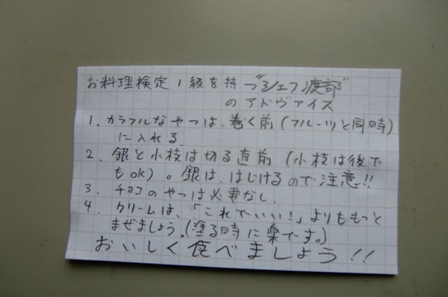 お料理検定1級を持つ"シェフ渡部"
のアドヴァイス
1、カラフルなやつは、巻く前(フルーツと同時)
に入れる
2、銀と小枝は切る直前(小枝は後で
もok)。銀は、はじけるので注意!!
3、チョコのやつは必要なし
4、クリームは、「これでいい!」よりももっと
まぜましょう。(塗る時に楽です。)
おいしく食べましょう!!